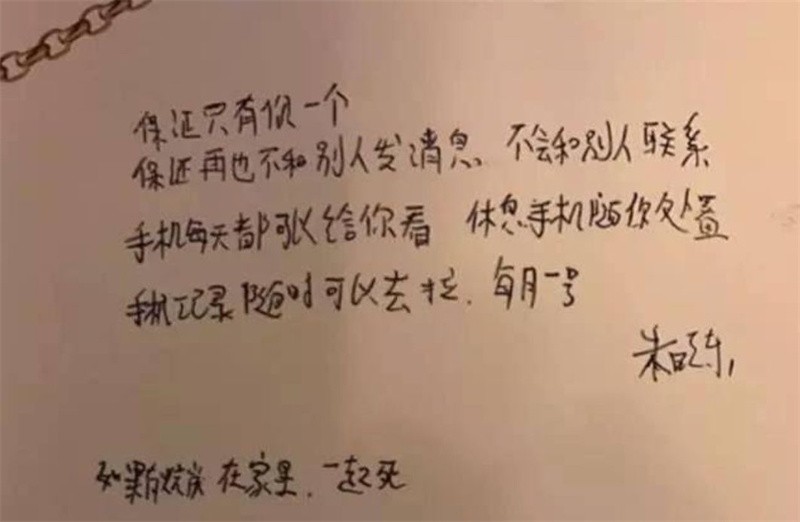 保证只有你一个
保证再也不和别人发消息 不会和别人联系
手机每天都可以给你看 休息手机随你处置
手机记录随时可以去拉, 每月一号
朱晓东,
如果有 在家里, 一起死